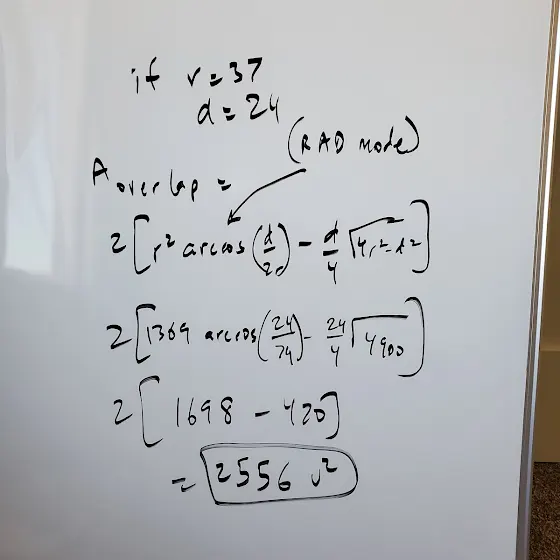 if r = 37
d = 24
(RAD mode)
A overlap =
2[r² arccos(d/2r) - d/4 √4r²-d²]
2[1369 arccos(24/74) - 24/4 √4900]
2[1698 - 420]
= 2556 u²